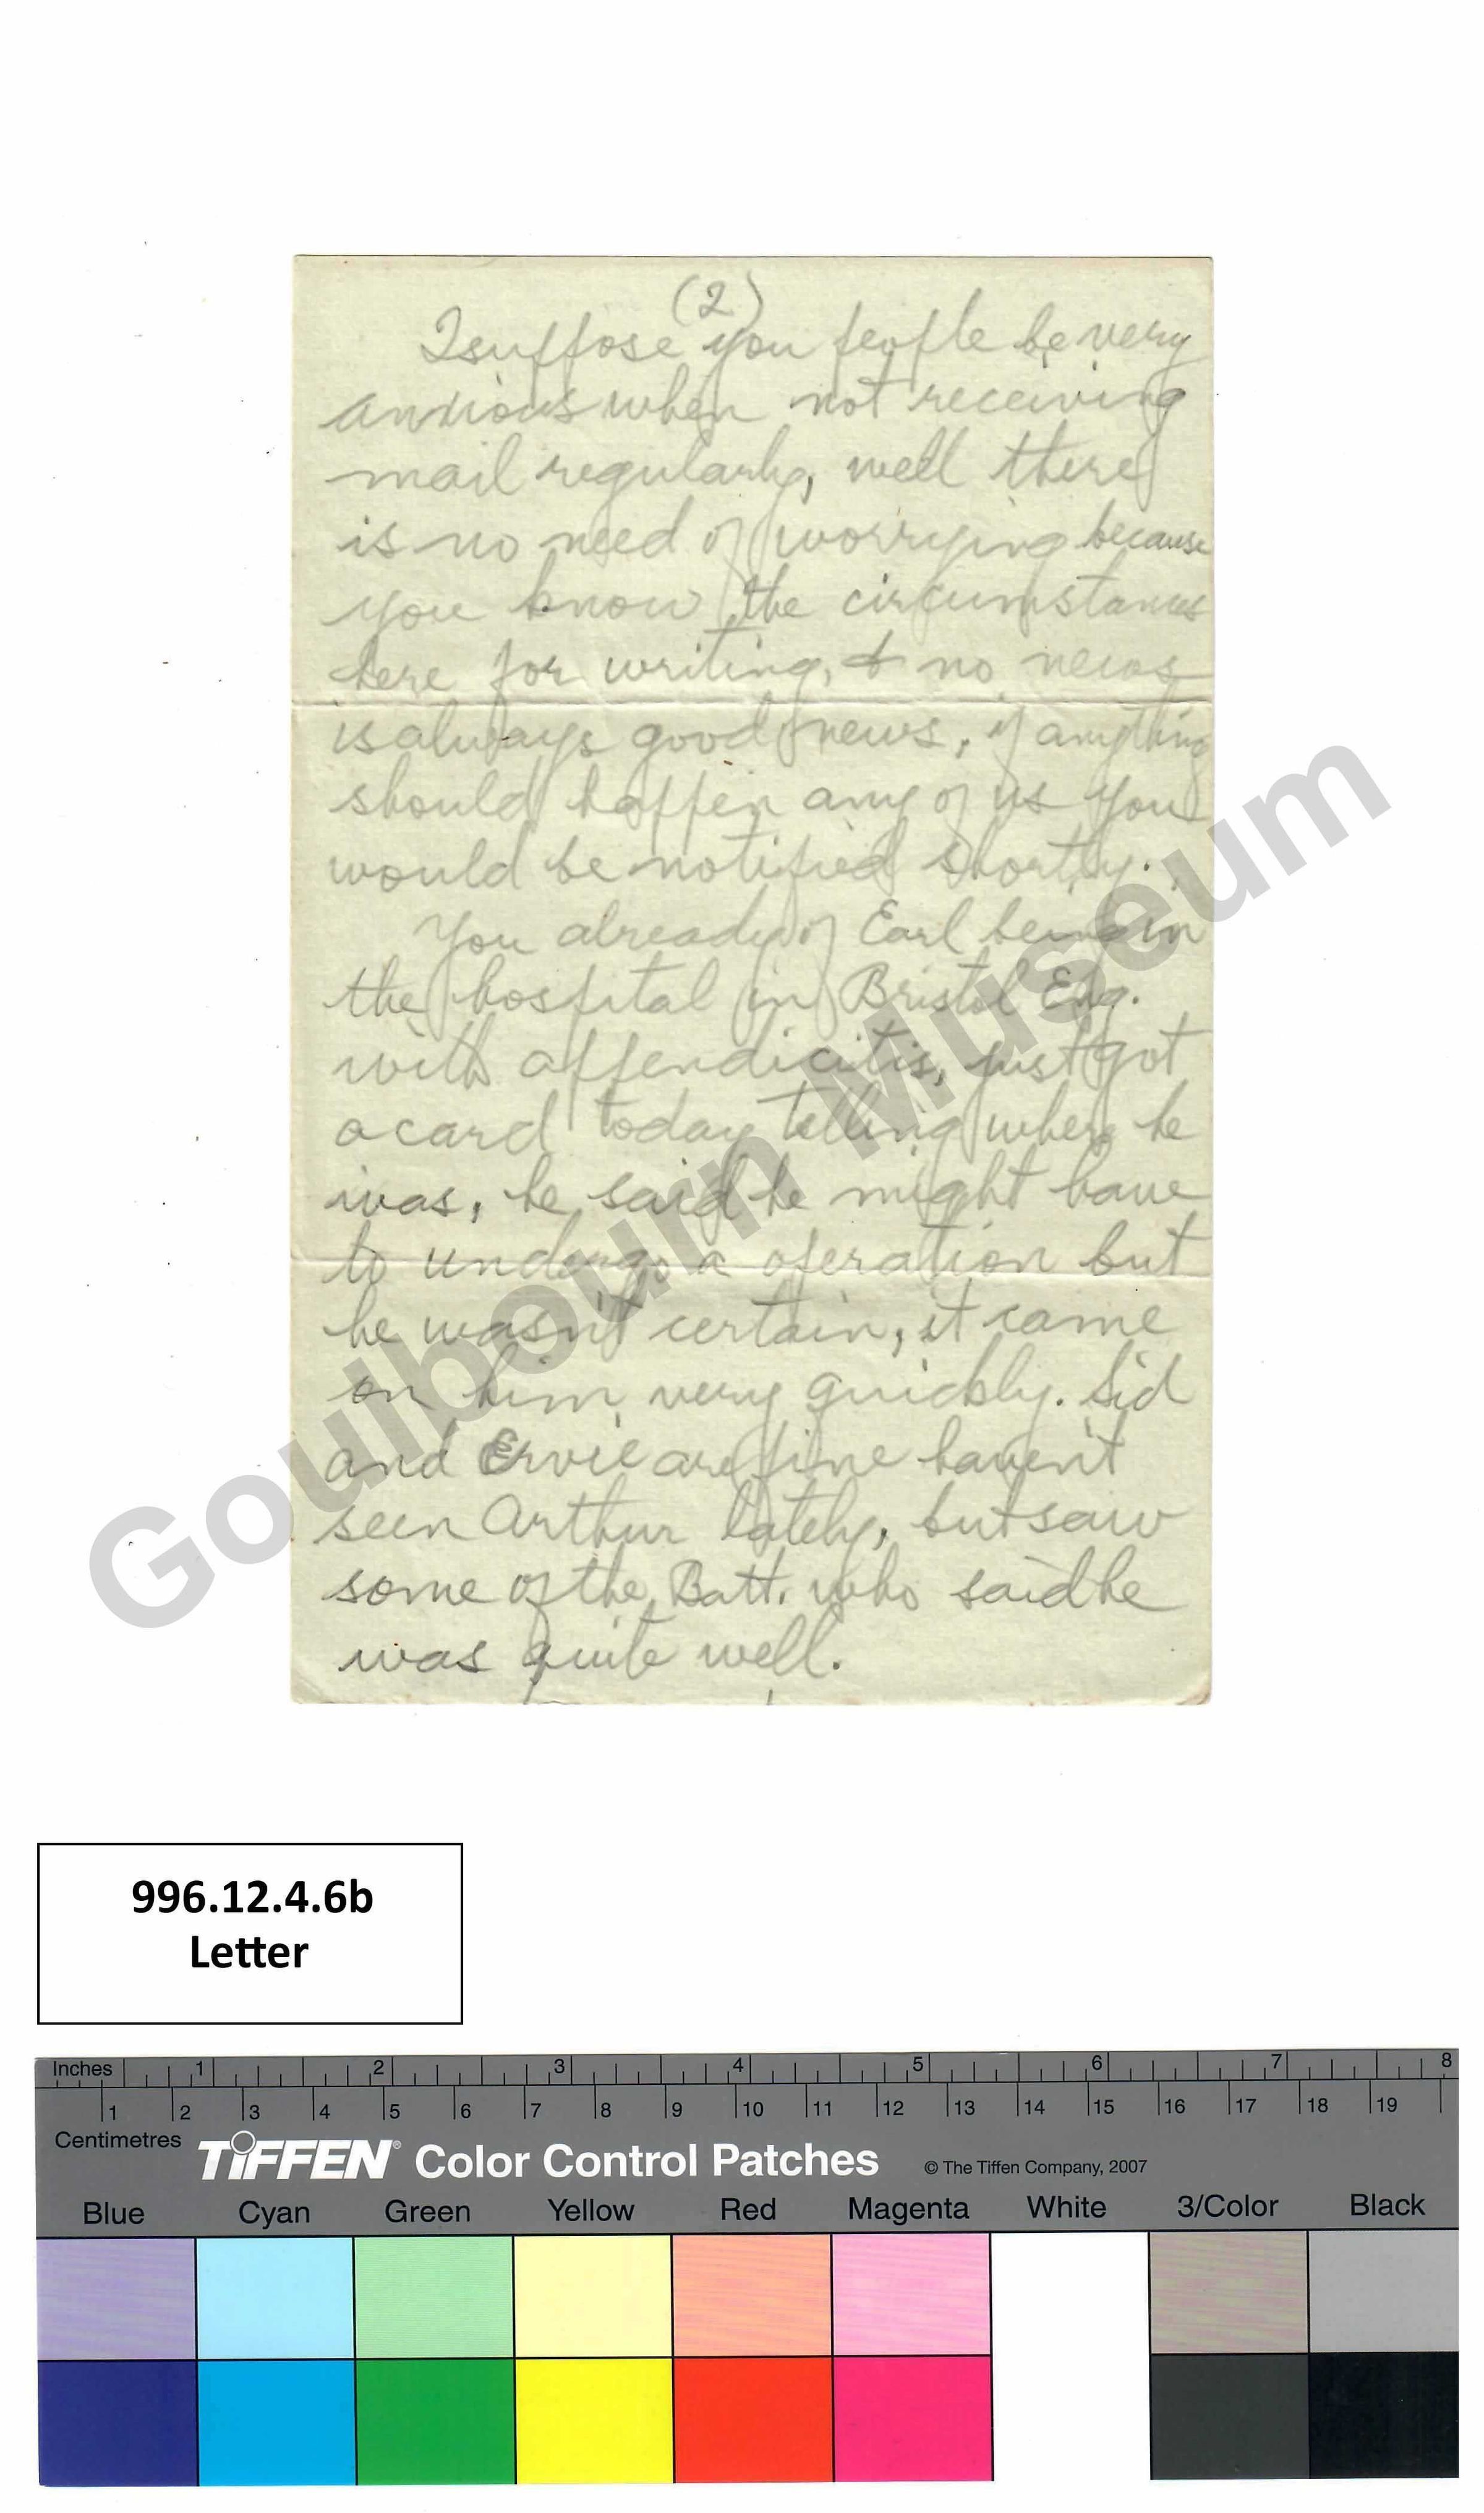 (2)
I suppose you people be very
anxious when not receiving
mail regularly, well there
is no need of worrying because
you know the circumstances
here for writing, & no news
is always good news, if anything
should happen any of us you
would be notified shortly.
You already of Earl being in
the hospital in Bristol Eng.
with appendicitis, just got
a card today telling where he
was, he said he might have
to undergo a operation but
he wasn't certain, it came
on him very quickly. Sid
and Ervie are fine haven't
seen Arthur lately, but saw
some of the Batt. who said he
was quite well.
Goulbourn Museum
996.12.4.6b
Letter
Inches 1 2 3 4 5 6 7 8
1 2 3 4 5 6 7 8 9 10 11 12 13 14 15 16 17 18 19
Centimetres
TIFFEN® Color Control Patches © The Tiffen Company, 2007
Blue Cyan Green Yellow Red Magenta White 3/Color Black